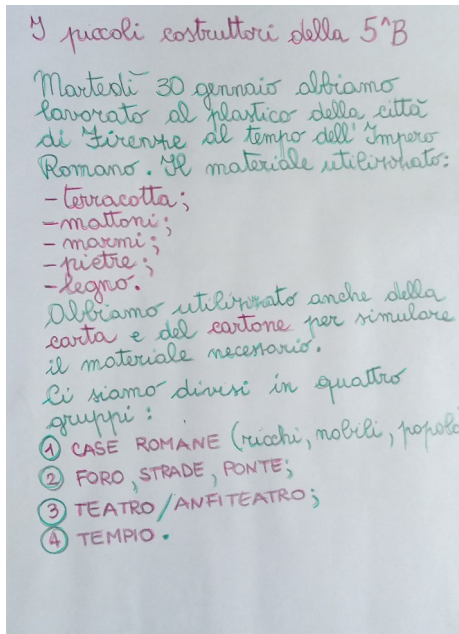 I piccoli costruttori della 5^B
Martedì 30 gennaio abbiamo
lavorato al plastico della città
di Firenze al tempo dell'Impero
Romano. Il materiale utilizzato:
-terracotta;
-mattoni;
- marmi;
-pietre;
-legno.
Abbiamo utilizzato anche della
carta e del cartone per simulare
il materiale necessario.
Ci siamo divisi in quattro
gruppi:
1 CASE ROMANE (ricchi, nobili, popolo)
2 FORO, STRADE, PONTE;
3 TEATRO/ANFITEATRO;
4 TEMPIO.